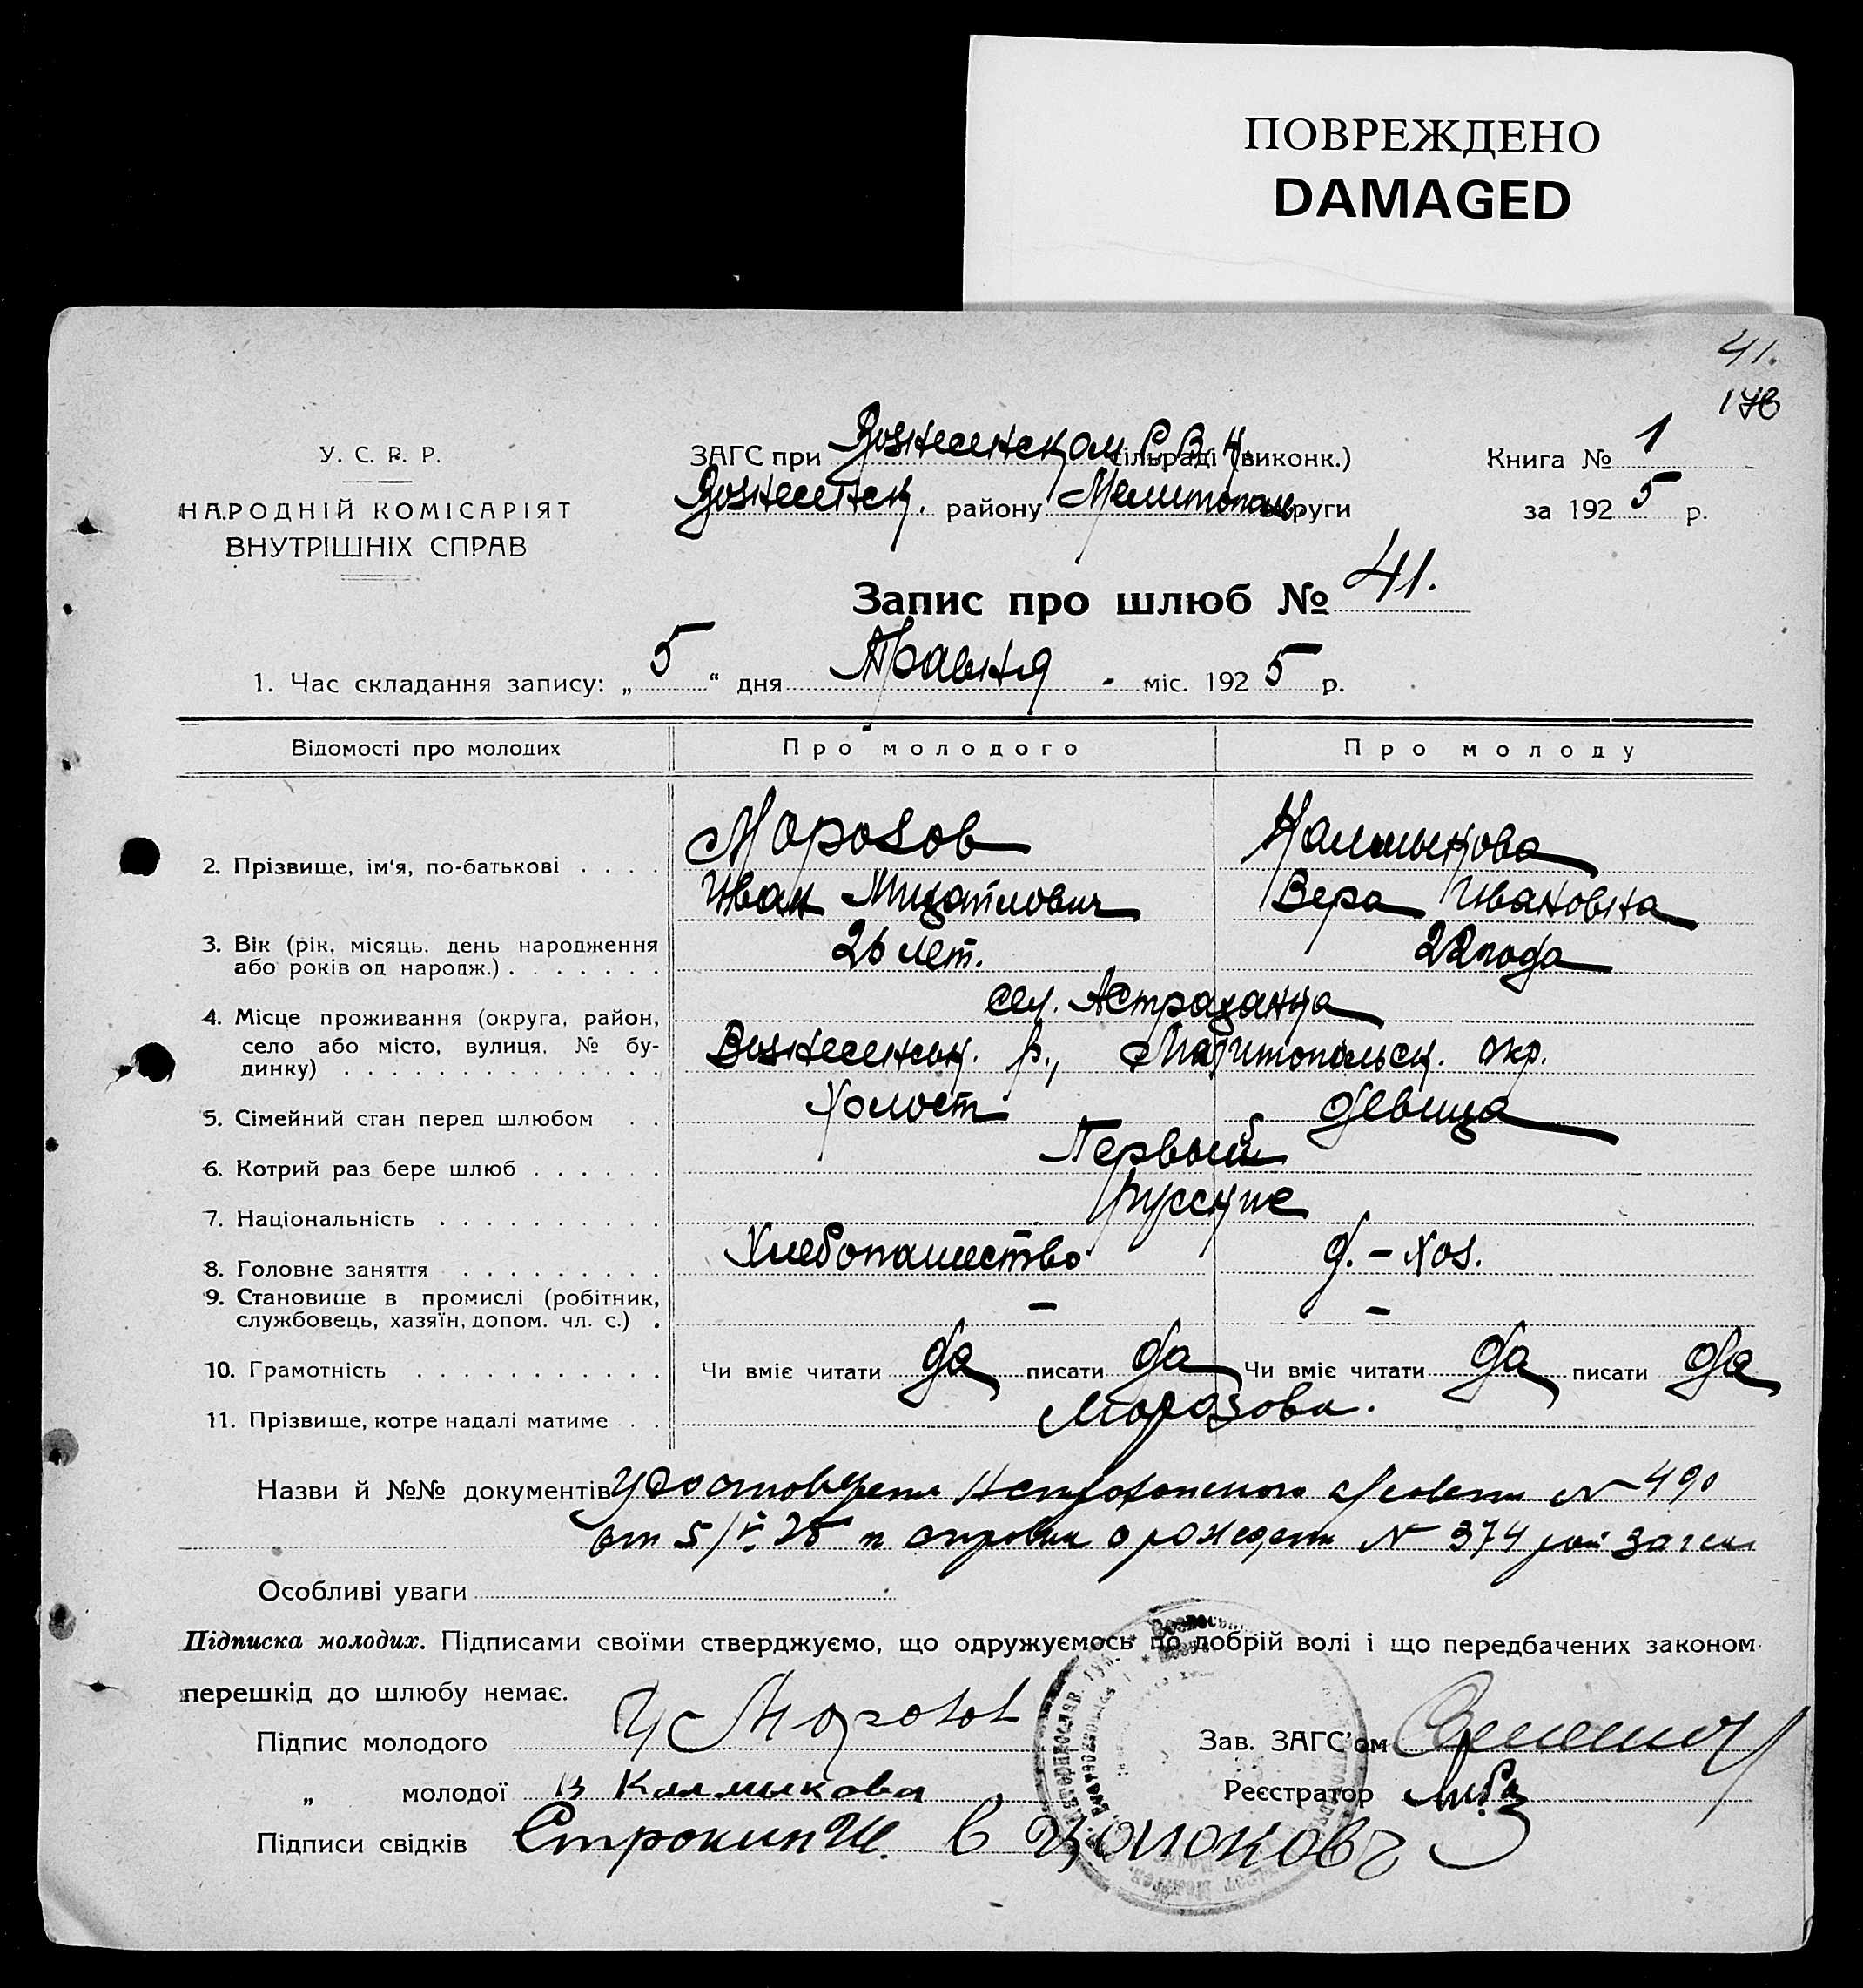 ПОВРЕЖДЕНО
DAMAGED
41.
178
У. С. Р. Р.
НАРОДНІЙ КОМІСАРІЯТ
ВНУТРІШНІХ СПРАВ
ЗАГС при Вознесенском Р.В.К. сільраді (виконк.)
Вознесенск. району Мелитополь. округи
Книга № 1
за 1925 р.
Запис про шлюб № 41.
1. Час складання запису: „5“ дня Травня міс. 1925 р.
Відомості про молодих
Про молодого
Про молоду
2. Прізвище, ім'я, по-батькові
Морозов
Иван Михайлович
Калмыкова
Вера Ивановна
3. Вік (рік, місяць, день народження
або років од народж.)
26 лет.
22 года
4. Місце проживання (округа, район,
село або місто, вулиця, № бу-
динку)
сел. Астраханка
Вознесенск. р., Мелитопольск. окр.
5. Сімейний стан перед шлюбом
Холост
девица
6. Котрий раз бере шлюб
Первый
7. Національність
Русские
8. Головне заняття
Хлебопашество
д. - хоз.
9. Становище в промислі (робітник,
службовець, хазяїн, допом. чл. с.)
-
-
10. Грамотність
Чи вміє читати да писати да
Чи вміє читати да писати да
11. Прізвище, котре надалі матиме
Морозовы.
Назви й №№ документів Удостоверен Астраханского с/совета № 490
от 5/V 25 и справки о рожден № 374 рай Загса
Особливі уваги
Підписка молодих. Підписами своїми стверджуємо, що одружуємось по добрій волі і що передбачених законом
перешкід до шлюбу немає.
Підпис молодого Морозов
Зав. ЗАГС'ом
„ молодої В Калмыкова
Реєстратор
Підписи свідків Строкин И. В